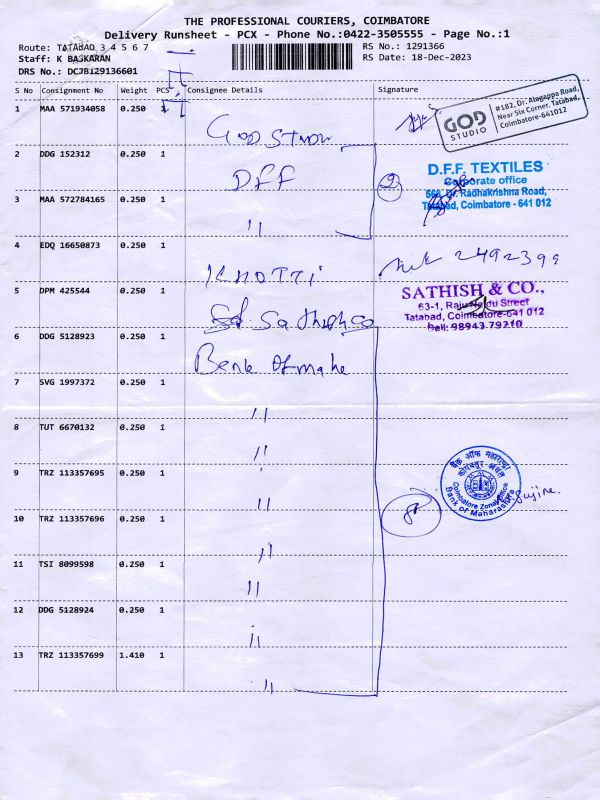 THE PROFESSIONAL COURIERS, COIMBATORE
Delivery Runsheet - PCX - Phone No.:0422-3505555 - Page No.:1
Route: TATABAD 3 4 5 6 7
RS No.: 1291366
Staff: K BASKARAN
RS Date: 18-Dec-2023
DRS No.: DCJB129136601
S No Consignment No Weight PCS Consignee Details Signature
1 MAA 571934058 0.250 1
GOD STUDIO
#182, Dr. Alagappa Road,
Near Six Corner, Tatabad,
Coimbatore-641012
2 DDG 152312 0.250 1 DFF
D.F.F. TEXTILES
Corporate office
Dr. Radhakrishna Road,
Tatabad, Coimbatore - 641 012
3 MAA 572784165 0.250 1 "
4 EDQ 16650873 0.250 1 2492399
5 DPM 425544 0.250 1 Sathish & Co
SATHISH & CO.,
63-1, Raju Naidu Street
Tatabad, Coimbatore-641 012
Cell: 98943 79210
6 DDG 5128923 0.250 1 Bank of mahe
7 SVG 1997372 0.250 1 "
8 TUT 6670132 0.250 1 "
9 TRZ 113357695 0.250 1 "
बैंक ऑफ महाराष्ट्र
Coimbatore Zonal Office
Bank of Maharashtra
10 TRZ 113357696 0.250 1 "
11 TSI 8099598 0.250 1 "
12 DDG 5128924 0.250 1 "
13 TRZ 113357699 1.410 1 "